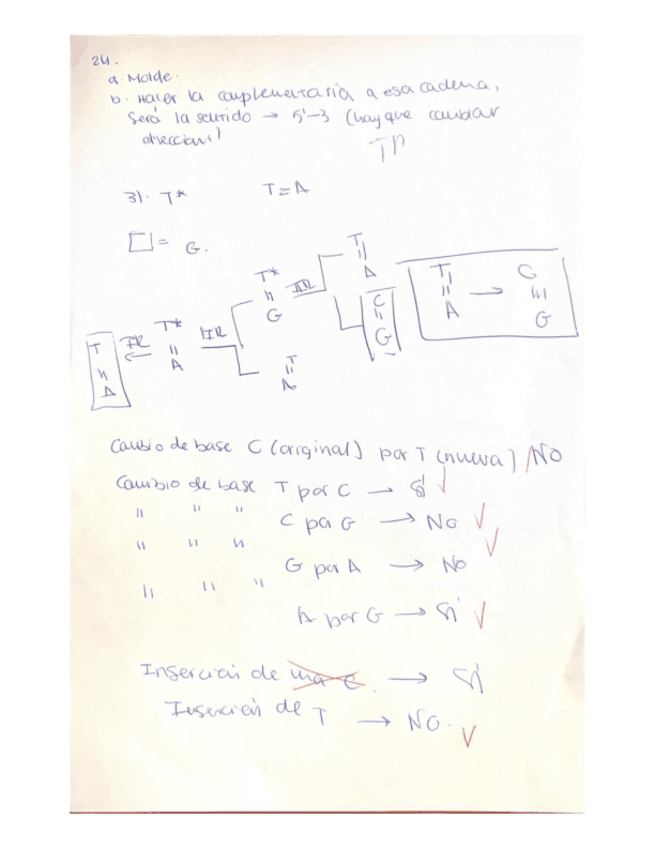 24.
a. Molde.
b. Hacer la complementaria a esa cadena,
Será la sentido → 5'-3 (hay que cambiar
dirección!
31. T* T=A
□ = G.
T
A
T* IIR
G
T*
A
IR
IIR
T
A
C
G
T
A
T
A → C
G
Cambio de base C (original) por T (nueva) / No
Cambio de base T por C → Sí √
" " " C por G → No √
" " " G por A → No √
" " " A por G → Sí √
Inserción de una C. → Sí
Inserción de T → NO. √